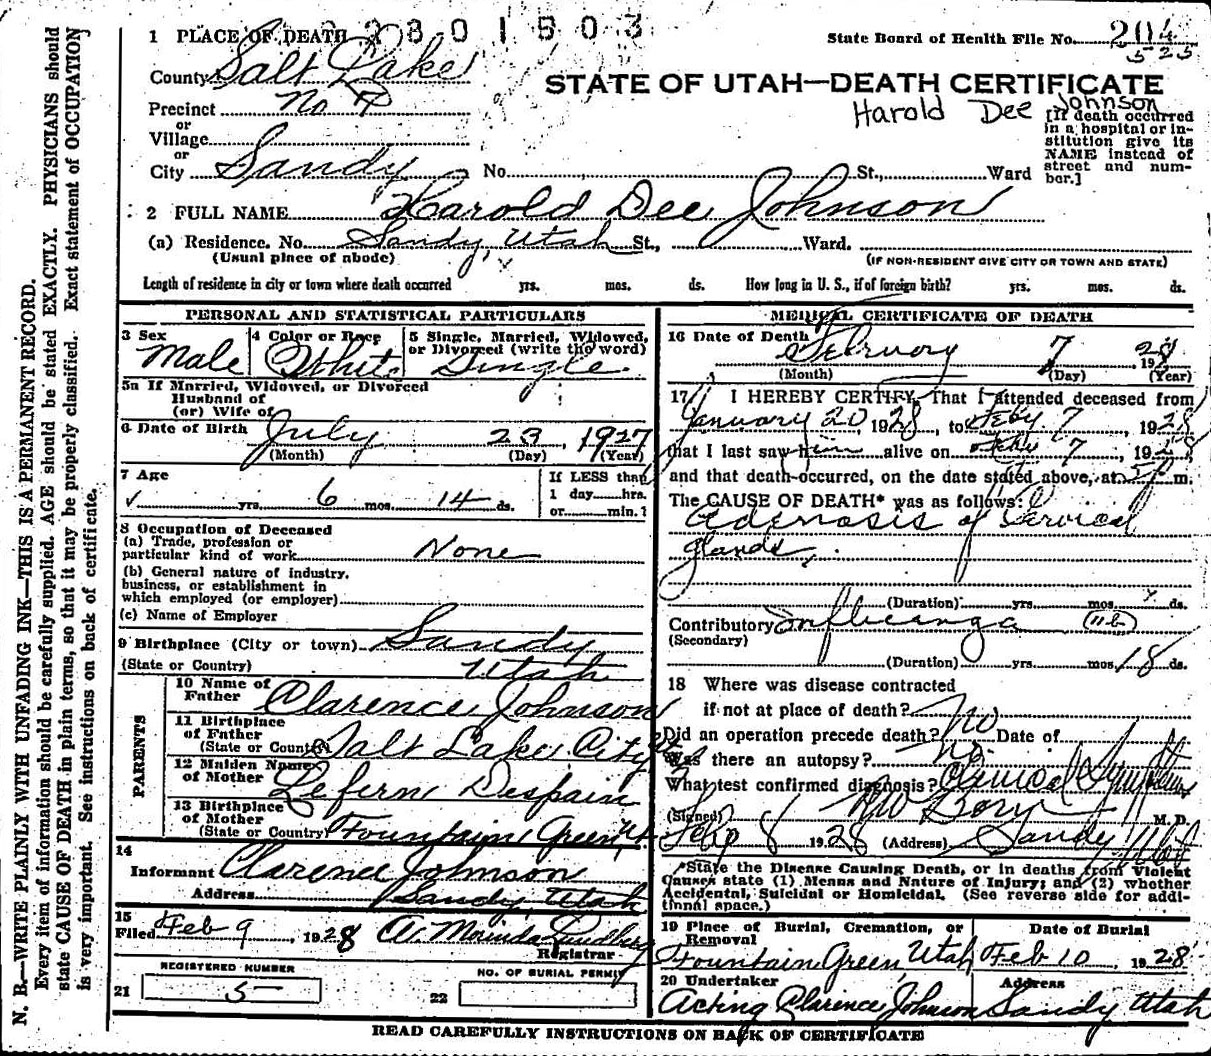 2 2 3 0 1 5 0 3
State Board of Health File No. 204
525
1 PLACE OF DEATH
County Salt Lake
STATE OF UTAH—DEATH CERTIFICATE
Harold Dee Johnson
Precinct No
or
Village
or
City Sandy No. St., Ward
[If death occurred
in a hospital or in-
stitution give its
NAME instead of
street and num-
ber.]
2 FULL NAME Harold Dee Johnson
(a) Residence. No. Sandy, Utah St., Ward.
(Usual place of abode)
(IF NON-RESIDENT GIVE CITY OR TOWN AND STATE)
Length of residence in city or town where death occurred yrs. mos. ds. How long in U. S., if of foreign birth? yrs. mos. ds.
PERSONAL AND STATISTICAL PARTICULARS
3 Sex Male
4 Color or Race White
5 Single, Married, Widowed,
or Divorced (write the word)
Single
5a If Married, Widowed, or Divorced
Husband of
(or) Wife of
6 Date of Birth July 23, 1927
(Month) (Day) (Year)
7 Age
yrs. 6 mos. 14 ds.
If LESS than
1 day hrs.
or min.?
8 Occupation of Deceased
(a) Trade, profession or
particular kind of work None
(b) General nature of industry,
business, or establishment in
which employed (or employer)
(c) Name of Employer
9 Birthplace (City or town) Sandy
(State or Country) Utah
PARENTS
10 Name of
Father Clarence Johnson
11 Birthplace
of Father
(State or Country) Salt Lake City
12 Maiden Name
of Mother Lefern Despain
13 Birthplace
of Mother
(State or Country) Fountain Green, Ut.
14
Informant Clarence Johnson
Address Sandy, Utah
15
Filed Feb 9, 1928 A. Morinda Lundberg
Registrar
REGISTERED NUMBER
21 5
NO. OF BURIAL PERMIT
22
MEDICAL CERTIFICATE OF DEATH
16 Date of Death February 7, 1928
(Month) (Day) (Year)
17 I HEREBY CERTIFY, That I attended deceased from
January 20, 1928, to Feby 7, 1928
that I last saw him alive on Feby 7, 1928
and that death occurred, on the date stated above, at 5 P m.
The CAUSE OF DEATH* was as follows:
Adenosis of Cervical
glands.
(Duration) yrs. mos. ds.
Contributory Influenza (11b)
(Secondary)
(Duration) yrs. mos. 18 ds.
18 Where was disease contracted
if not at place of death?
Did an operation precede death? No Date of
Was there an autopsy? No.
What test confirmed diagnosis? Clinical Symptoms
(Signed) M. D.
Feby 8 1928 (Address) Sandy Utah
*State the Disease Causing Death, or in deaths from Violent
Causes state (1) Menns and Nature of Injury; and (2) whether
Accidental, Suicidal or Homicidal. (See reverse side for addi-
tional space.)
19 Place of Burial, Cremation, or
Removal
Fountain Green Utah
Date of Burial
Feb 10, 1928
20 Undertaker
Acting Clarence Johnson
Address
Sandy Utah
READ CAREFULLY INSTRUCTIONS ON BACK OF CERTIFICATE
N. B.—WRITE PLAINLY WITH UNFADING INK—THIS IS A PERMANENT RECORD.
Every item of information should be carefully supplied. AGE should be stated EXACTLY. PHYSICIANS should
state CAUSE OF DEATH in plain terms, so that it may be properly classified. Exact statement of OCCUPATION
is very important. See instructions on back of certificate.